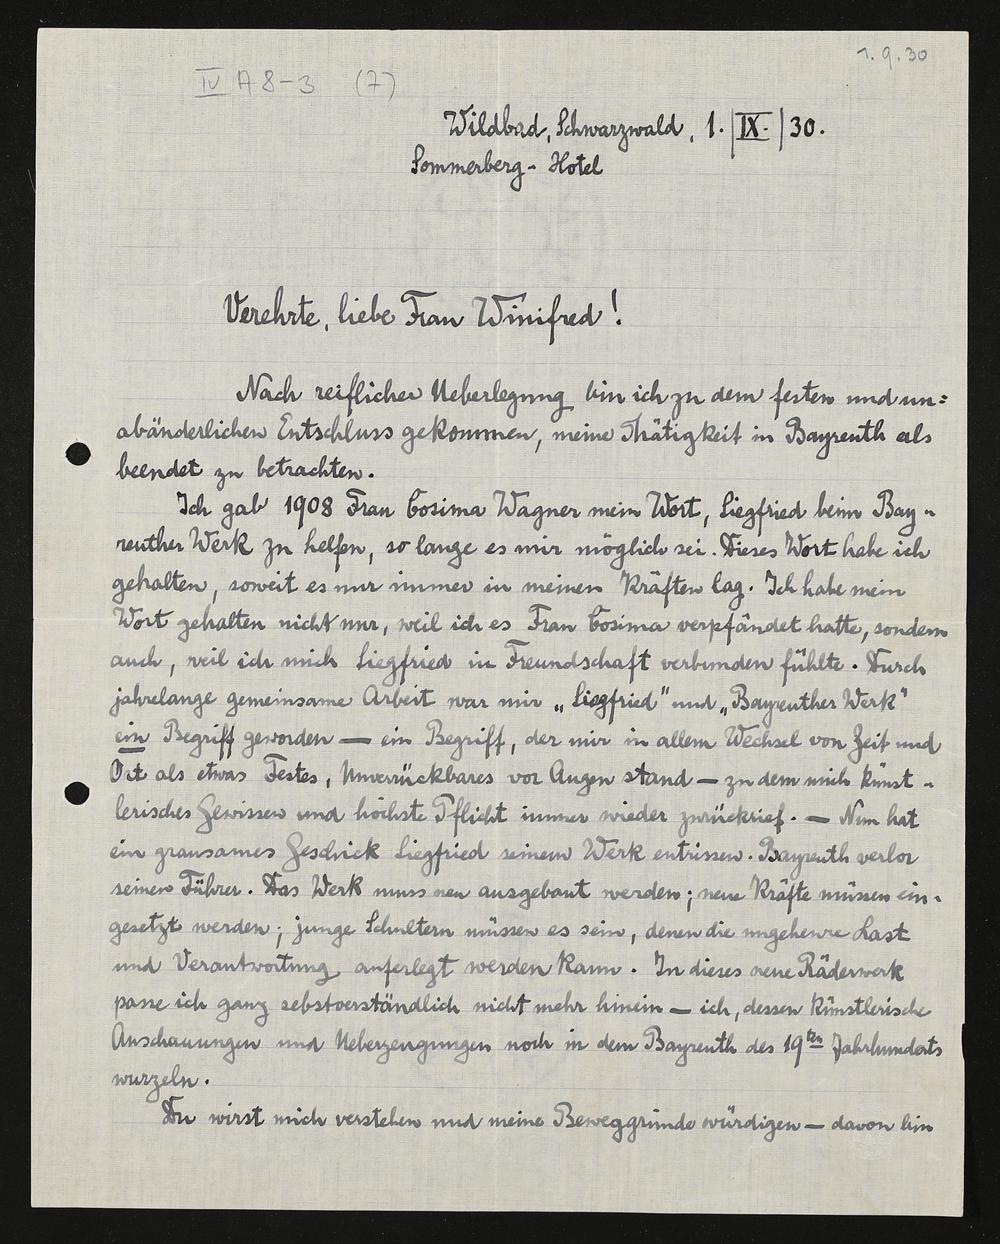 1. 9. 30
IV A 8-3 (7)
Wildbad, Schwarzwald, 1. | IX. | 30.
Sommerberg- Hotel
Verehrte, liebe Frau Winifred!
Nach reiflicher Ueberlegung bin ich zu dem festen und un=
abänderlichen Entschluss gekommen, meine Thätigkeit in Bayreuth als
beendet zu betrachten.
Ich gab 1908 Frau Cosima Wagner mein Wort, Siegfried beim Bay-
reuther Werk zu helfen, so lange es mir möglich sei. Dieses Wort habe ich
gehalten, soweit es nur immer in meinen Kräften lag. Ich habe mein
Wort gehalten nicht nur, weil ich es Frau Cosima verpfändet hatte, sondern
auch, weil ich mich Siegfried in Freundschaft verbunden fühlte. Durch
jahrelange gemeinsame Arbeit war mir „Siegfried" und „Bayreuther Werk"
ein Begriff geworden — ein Begriff, der mir in allem Wechsel von Zeit und
Ort als etwas Festes, Unverrückbares vor Augen stand — zu dem mich künst-
lerisches Gewissen und höchste Pflicht immer wieder zurückrief. — Nun hat
ein grausames Geschick Siegfried seinem Werk entrissen. Bayreuth verlor
seinen Führer. Das Werk muss neu ausgebaut werden; neue Kräfte müssen ein-
gesetzt werden; junge Schultern müssen es sein, denen die ungeheure Last
und Verantwortung auferlegt werden kann. In dieses neue Räderwerk
passe ich ganz sebstverständlich nicht mehr hinein — ich, dessen künstlerische
Anschauungen und Ueberzeugungen noch in dem Bayreuth des 19ten Jahrhunderts
wurzeln.
Du wirst mich verstehen und meine Beweggründe würdigen — davon bin